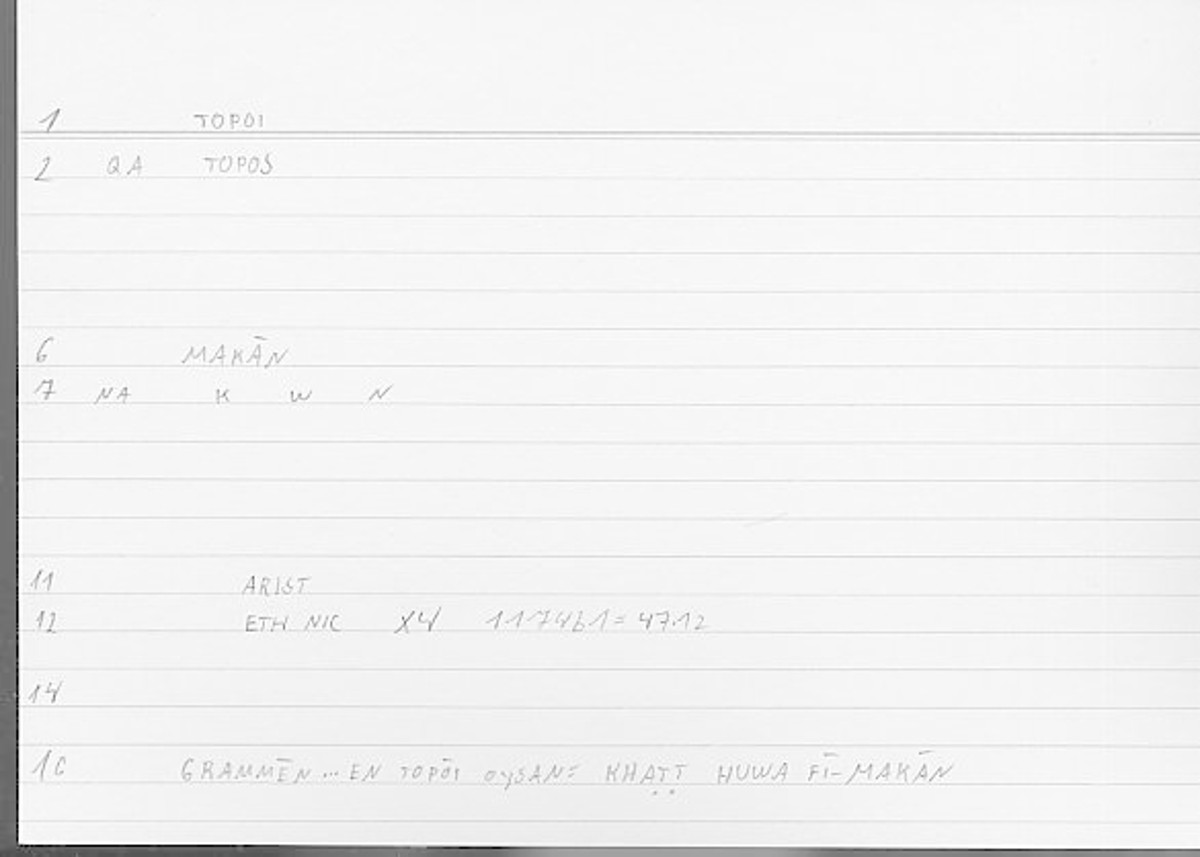 1 TOPOI
2 QA TOPOS
6 MAKĀN
7 NA K W N
11 ARIST
12 ETH NIC X4 1174b1 = 47.12
14
16 GRAMMĒN ... EN TOPŌI OYSAN = KHAṬṬ HUWA FĪ-MAKĀN